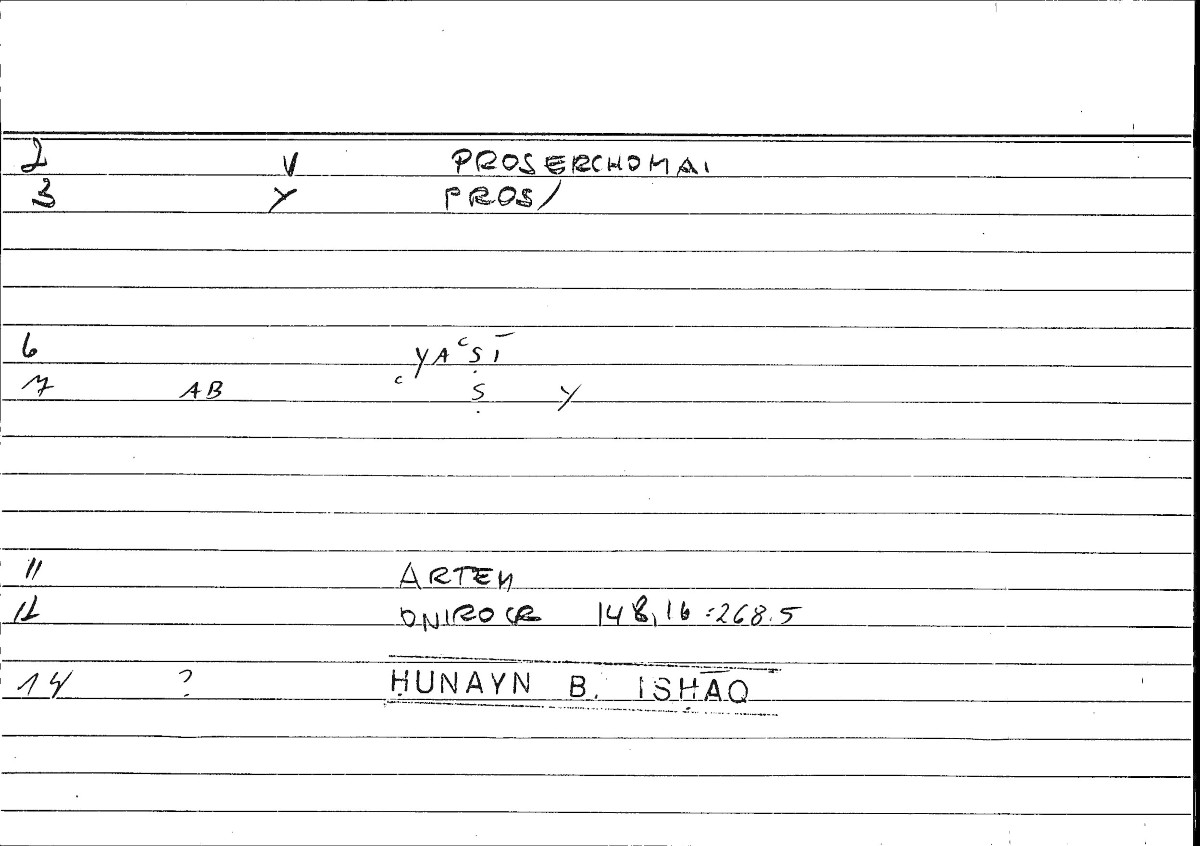 2 V PROSERCHOMAI
3 Y PROS/
6 YAʿṢĪ
7 AB ʿ Ṣ Y
11 ARTEM
12 ONIROCR 148,16:268.5
14 ? ḤUNAYN B. ISḤĀQ